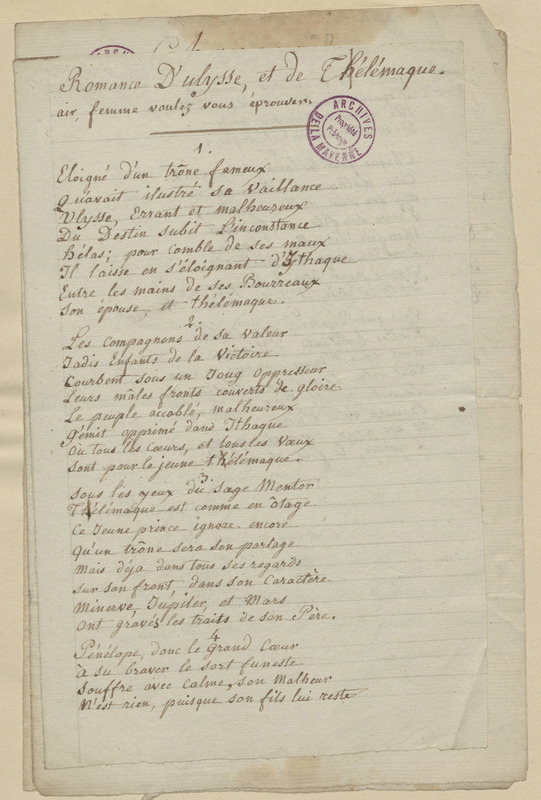 Romance D'ulysse, et de Thélémaque.
air, femme voulez vous éprouver
ARCHIVES
DE LA MAYENNE
Propriété
Publique
1.
Eloigné d'un trône fameux
Qu'avait ilustré sa Vaillance
Ulysse, Errant et malheureux
Du Destin subit L'inconstance
hélas; pour comble de ses maux
Il laisse en s'éloignant d'Ythaque
Entre les mains de ses Bourreaux
Son épouse, et thélémaque.
2.
Les Compagnons de sa Valeur
Jadis Enfants de la Victoire
Courbent sous un Joug oppresseur
Leurs mâles fronts couverts de gloire
Le peuple accablé, malheureux
Gémit opprimé dans Ithaque
Où tous les Cœurs, et tous les Vœux
Sont pour le jeune thélémaque.
3.
Sous les yeux du sage Mentor
Thélémaque est comme en ôtage
Ce Jeune prince ignore encore
Qu'un trône sera son partage
Mais déja dans tous ses regards
Sur son front, dans son Caractère
Minerve, Jupiter, et Mars
Ont gravés les traits de son Père.
4
Pénélope, donc le Grand Cœur
à su braver le sort funeste
Souffre avec Calme, son Malheur
N'est rien, puisque son fils lui reste